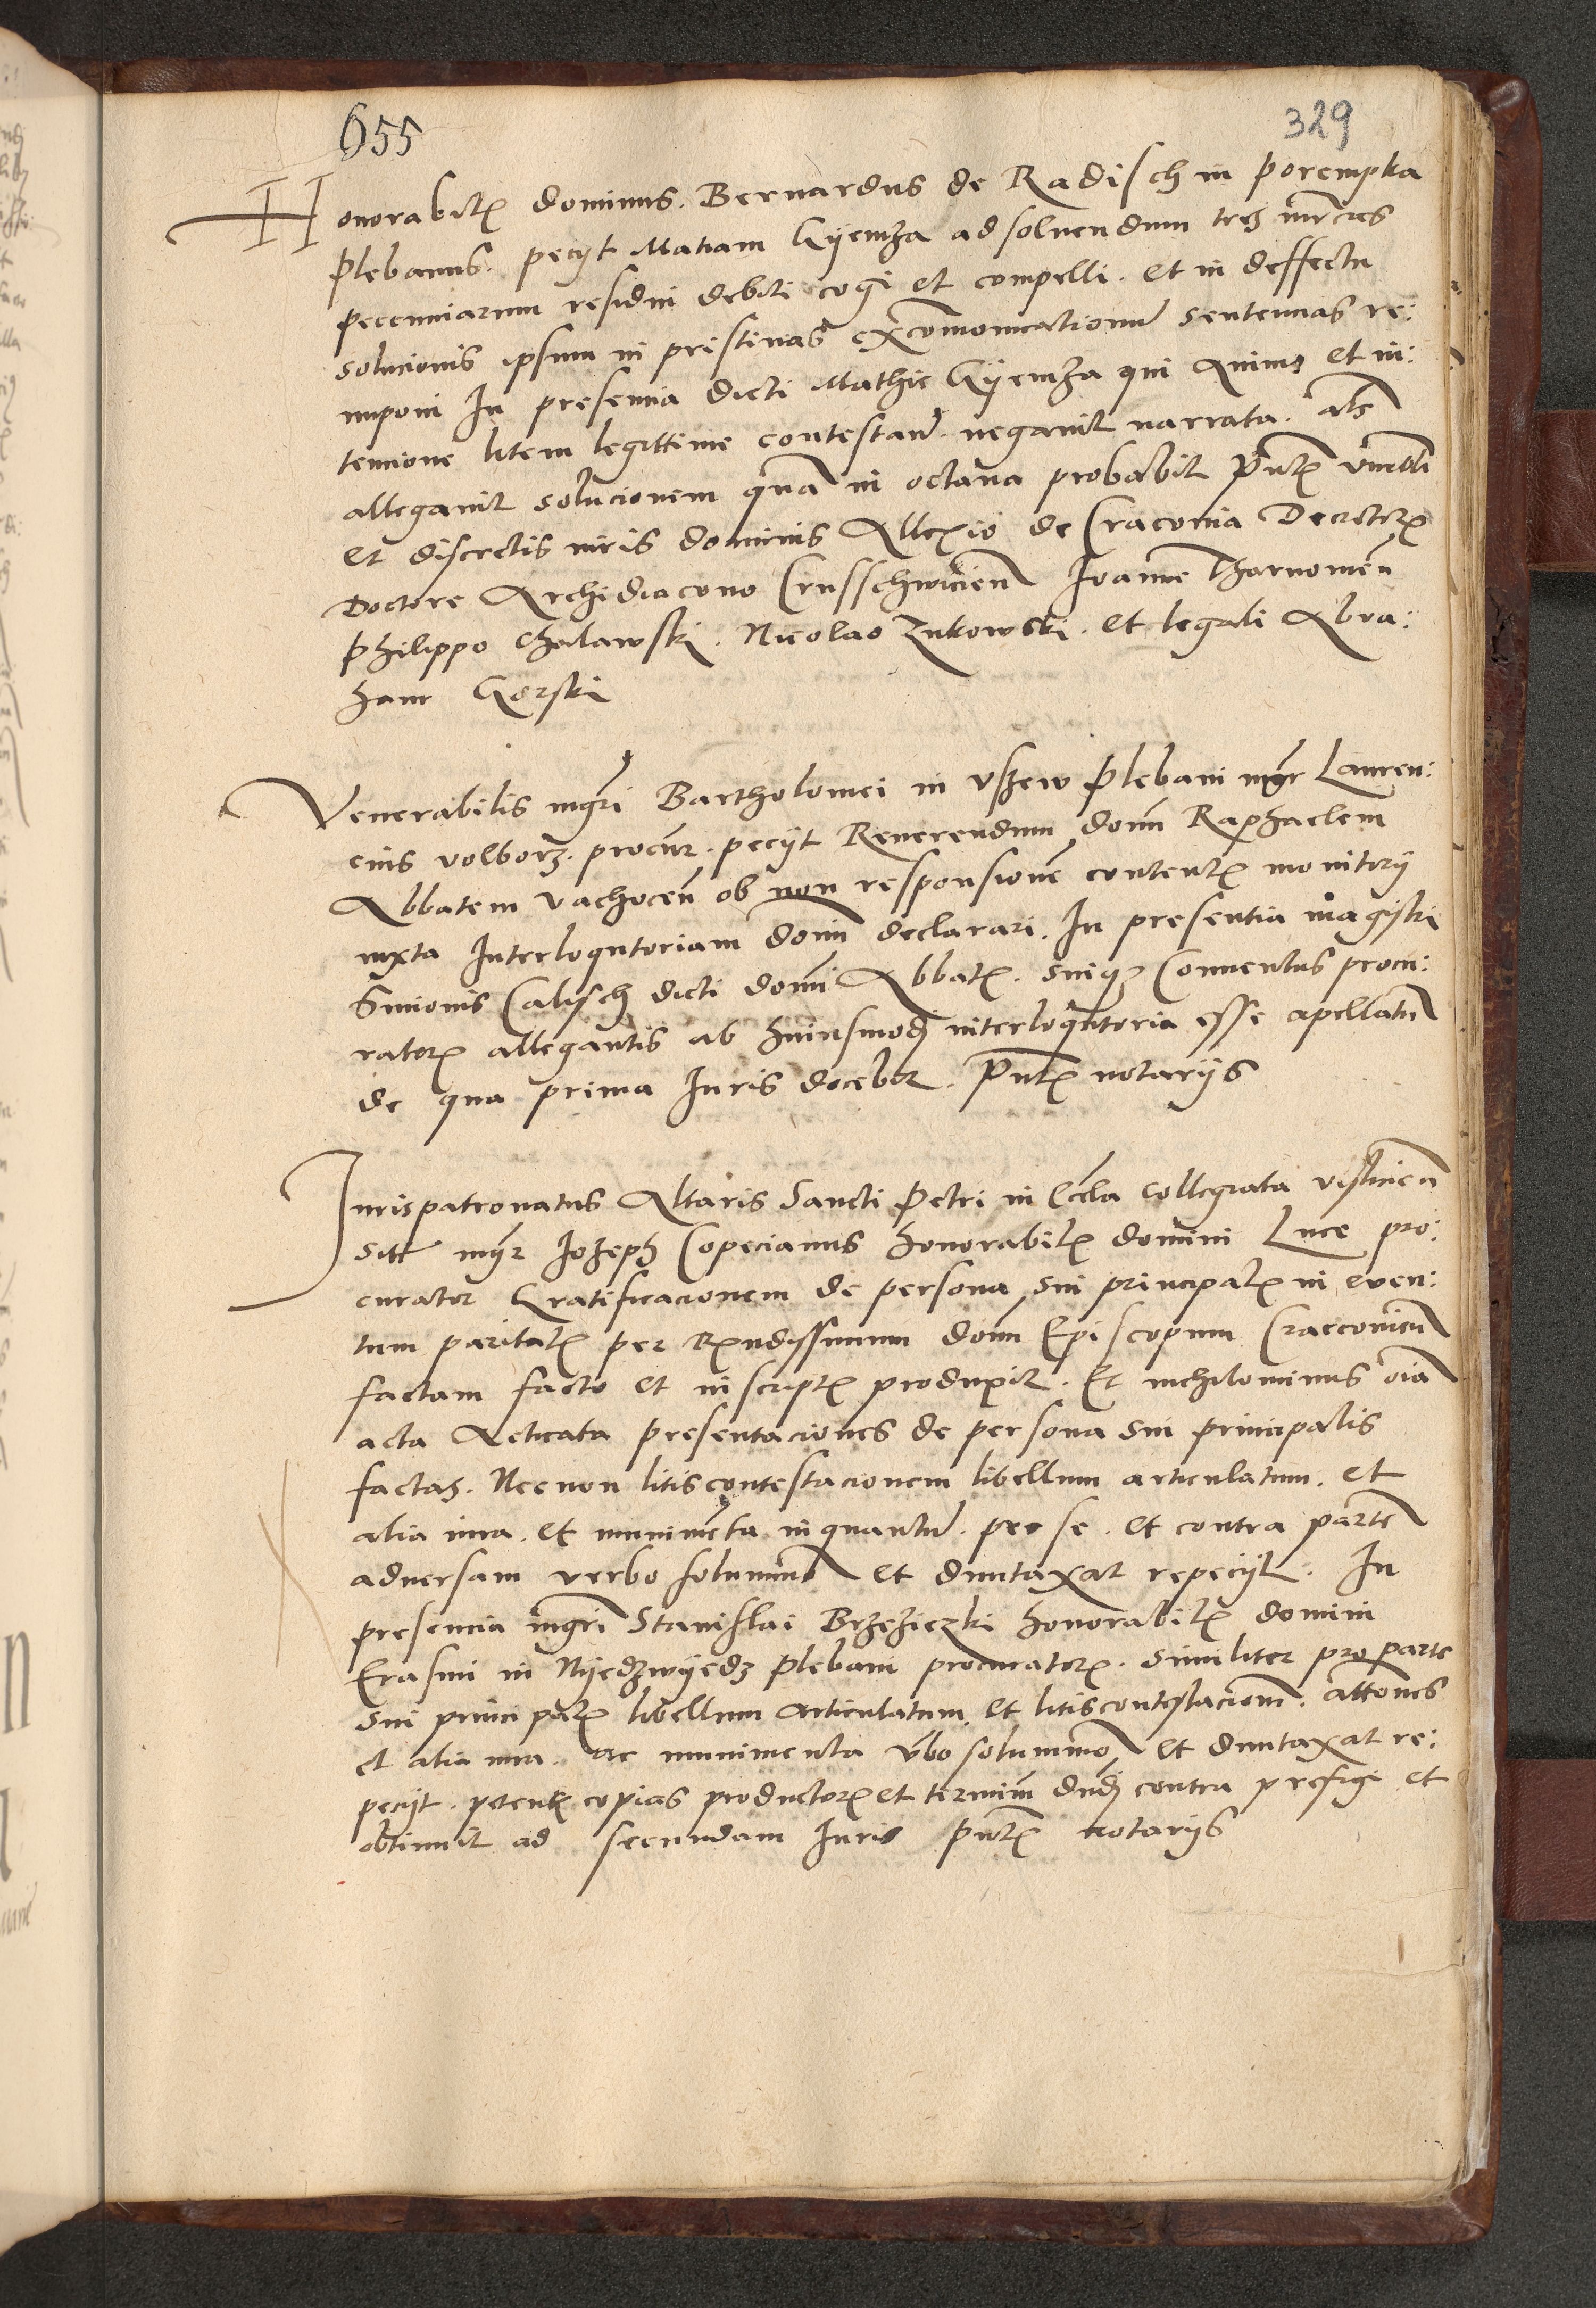 655
329
Honorabilis dominus. Bernardus de Radisch in porempka
Plebanus. pecyt Matiam Gyemza ad soluendum tres mrcas
pecenniarum residui debiti cogi et compelli. et in deffectu
solucionis ipsum in pristinas excomonicationum sentencias re:
imponi In presencia dicti Mathie Gyemza qui animo et in:
tencione litem legittime contestandi negauit narrata. als
allegauit solucionem quam in octaua probabit pntibus
et discretis viris dominis Allexio de Cracouia Decretorum
Doctore Archidiacono Crusschwicien Ioanne Tharnowen
philippo Chalawski. Nicolao Zukowski. et legali Abra:
ham Gorski
Venerabilis mgri Bartholomei in Vszew Plebani mgr Lauren:
cius volborz. procur. pecyt Reuerendum donm Raphaelem
Abbatem vachocen ob non responsionem contentorum monitorij
iuxta Interloqutoriam domi declarari. In presentia magistri
Simonis Calisch dicti domi Abbatis. suique Conuentus procu:
ratoris allegantis ab huiusmodi interloqutoria esse apellatum
de qua prima Iuris docebit. pntibus notarijs
Iurispatronatus Altaris Sancti Petri in Eccla collegiata vislicien
siti mgr Iozeph Copecianus honorabilis domini Luce pro:
curator Gratificacionem de persona sui principalis in euen:
tum paritatis per Rendissimum donm Episcopum Cracconien
factam facto et in scriptis produxit. Et nichilominus oia
acta Acticata presentaciones de persona sui principalis
factas. Necnon litiscontestacionem libellum articulatum. et
alia iura. et munimenta inquantum. pro se. et contra partem
aduersam verbo solummodo et duntaxat repecyt. In
presencia mgri Stanislai Brzeziczki honorabilis domini
Erasmi in Nyedzwyedz plebani procuratoris. similiter pro parte
sui principalis libellum articulatum. et litiscontestacionem. attones
et alia iura. ac munimenta vbo solummodo et duntaxat re:
pecyt. petentis copias productorum et terminum dndi contra prefigi et
obtinuit ad secundam Iuris pntibus notarijs